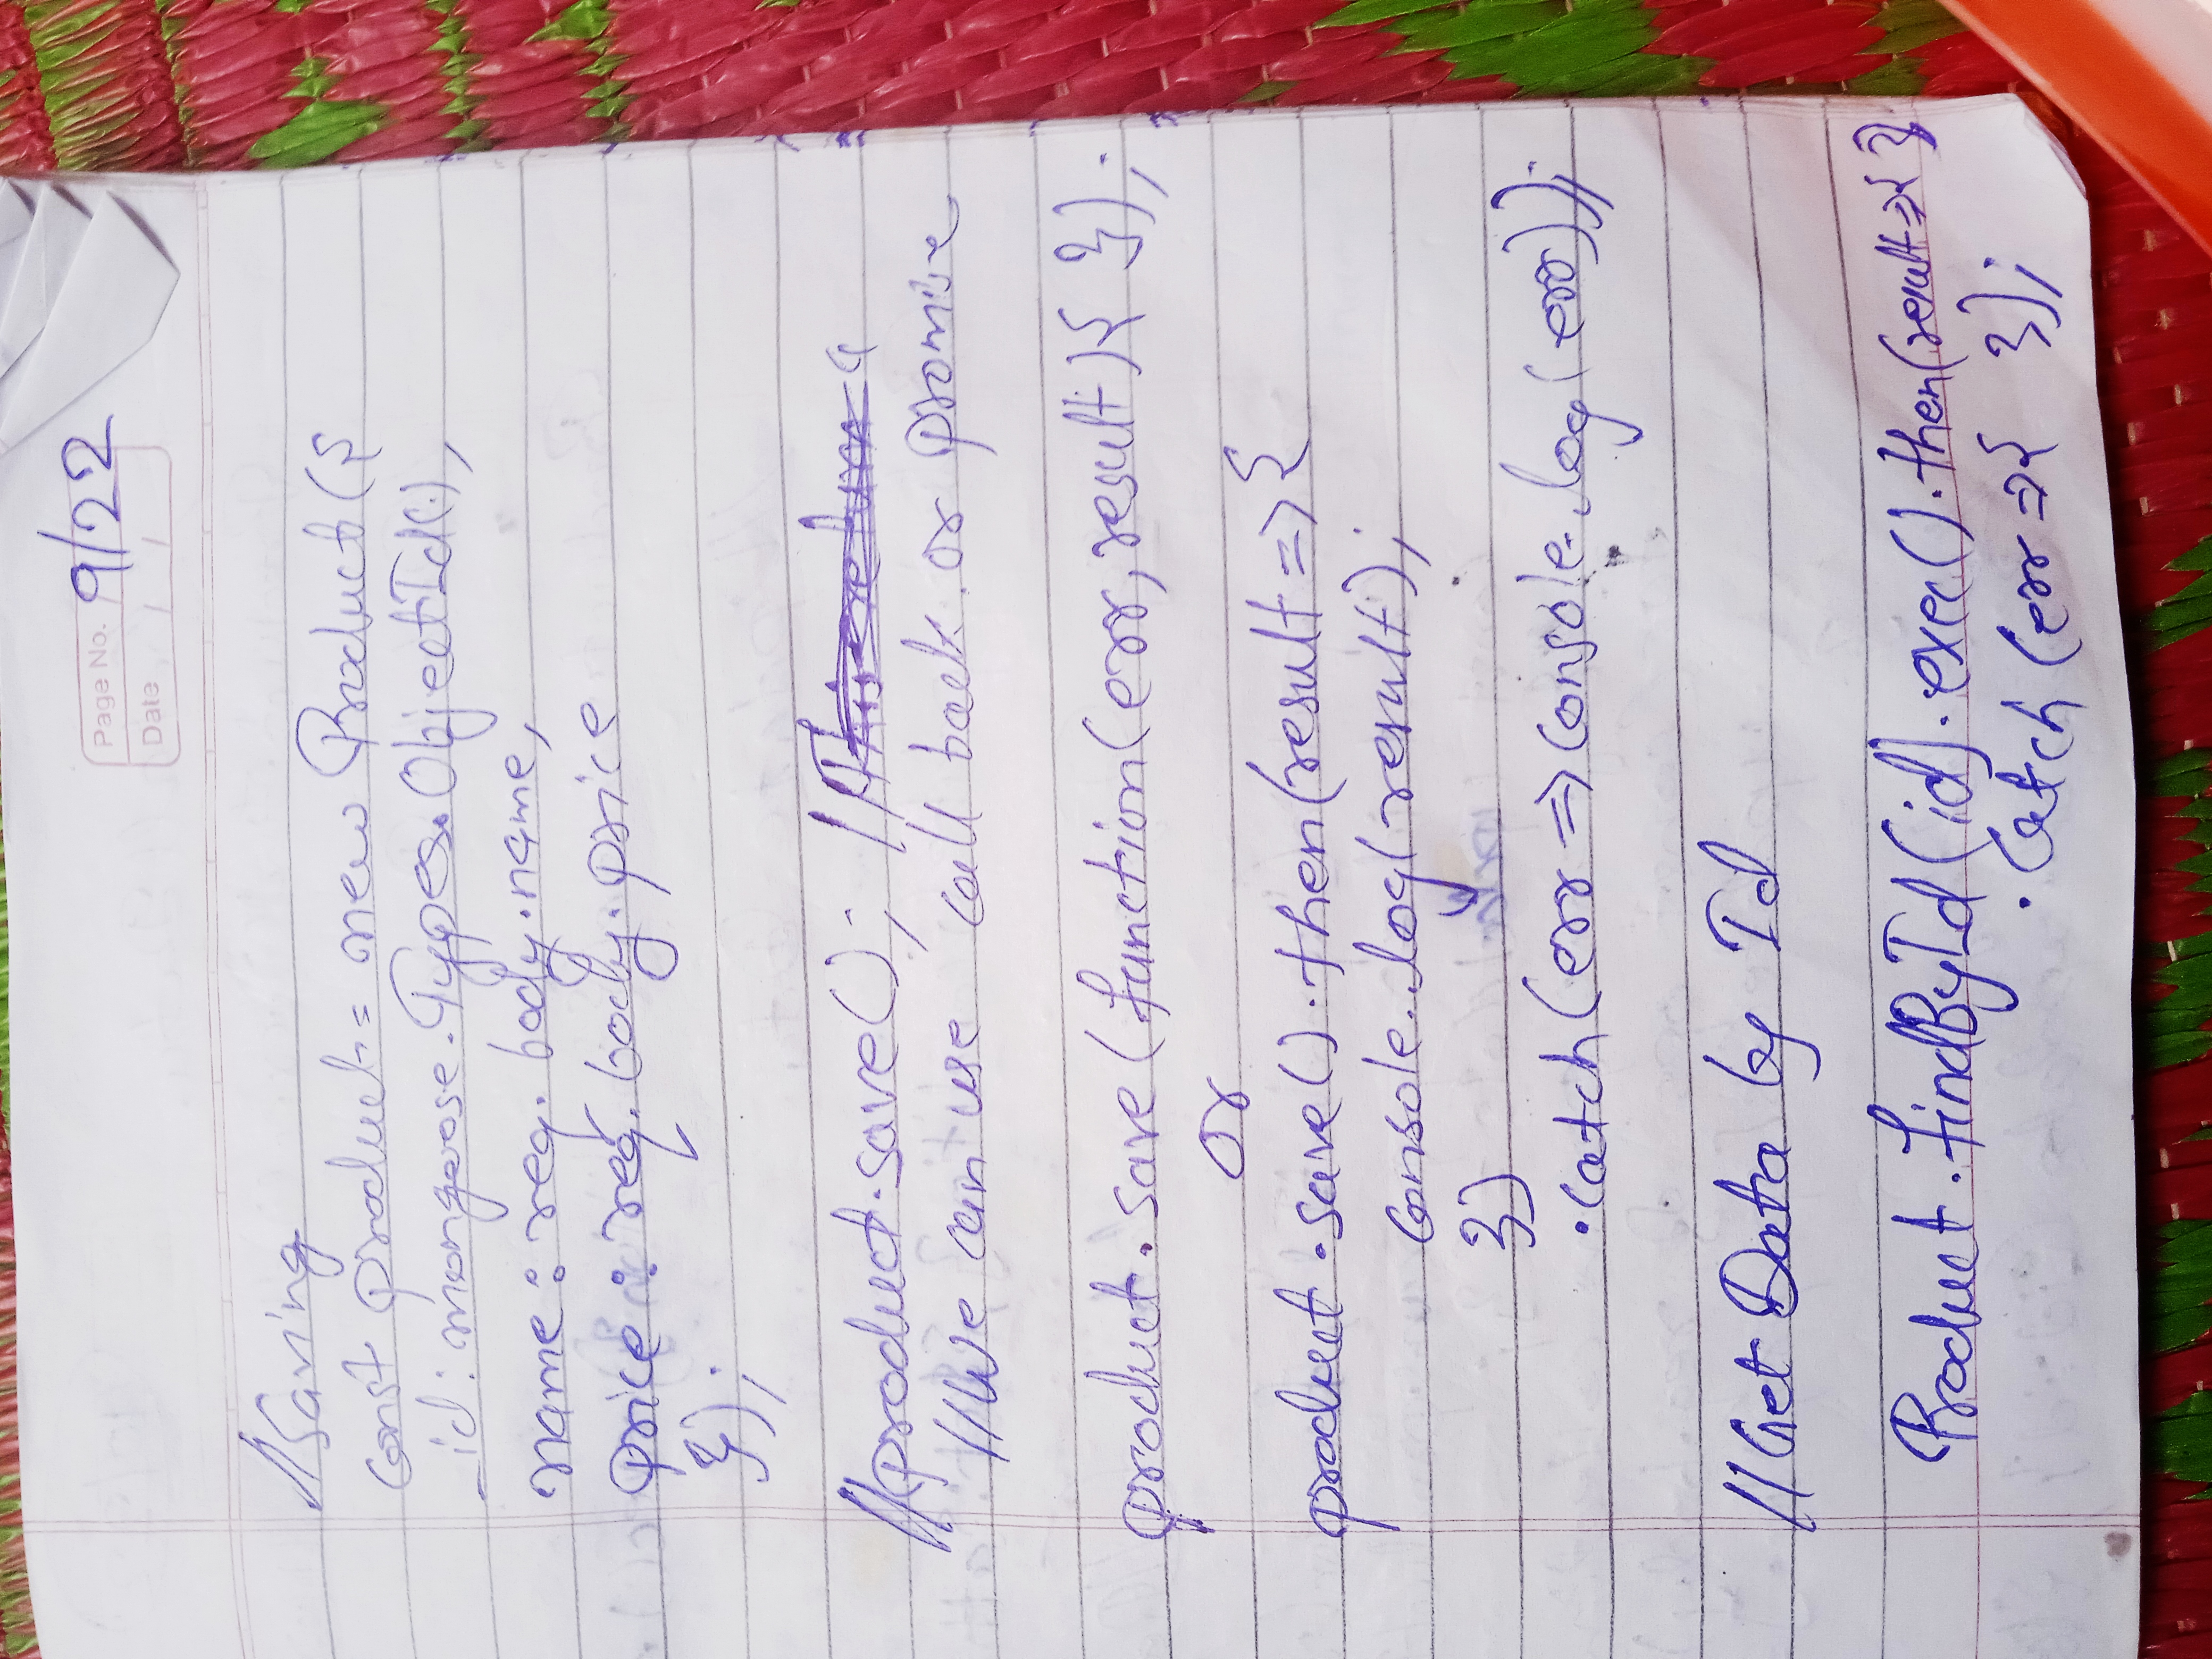 Page No. 9/22
Date / /
//Saving
const product = new Product({
_id: mongoose.Types.ObjectId(),
name: req.body.name,
price: req.body.price
});
//product.save(); //This return a
//We can use call back or promise
product.save(function(err, result){ });
or
product.save().then(result => {
console.log(result);
})
.catch(err => console.log(err));
//Get Data by Id
Product.findById(id).exec().then(result => { }
.catch(err => { });